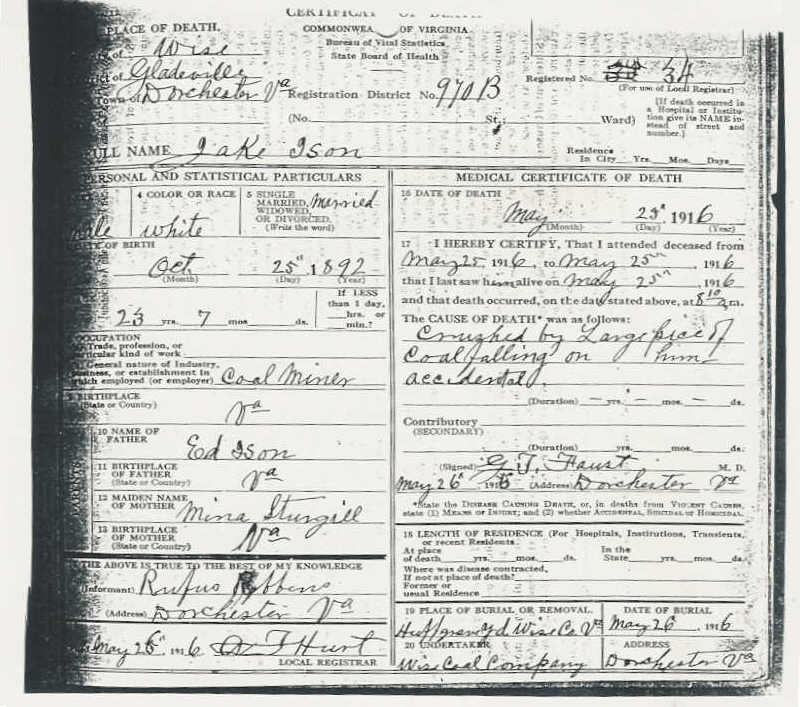 CERTIFICATE OF DEATH
PLACE OF DEATH.
COMMONWEA OF VIRGINIA
Bureau of Vital Statistics
State Board of Health
of Wise
ct of Gladeville
Town of Dorchester Va
Registration District No. 970B
Registered No. 34
(For use of Local Registrar)
(No. St.; Ward)
[If death occurred in a Hospital or Institution give its NAME instead of street and number.]
Residence In City Yrs. Mos. Days
ULL NAME Jake Ison
PERSONAL AND STATISTICAL PARTICULARS
ale
4 COLOR OR RACE
white
5 SINGLE MARRIED, WIDOWED, OR DIVORCED. (Write the word)
married
TE OF BIRTH
Oct 25th 1892
(Month) (Day) (Year)
23 yrs. 7 mos. ds.
If LESS than 1 day, hrs. or min.?
OCCUPATION
Trade, profession, or
cular kind of work
General nature of Industry,
siness, or establishment in
which employed (or employer) Coal Miner
BIRTHPLACE
(State or Country) Va
10 NAME OF FATHER Ed Ison
11 BIRTHPLACE OF FATHER (State or Country) Va
PARENTS
12 MAIDEN NAME OF MOTHER Mina Sturgill
13 BIRTHPLACE OF MOTHER (State or Country) Va
THE ABOVE IS TRUE TO THE BEST OF MY KNOWLEDGE
(Informant) Rufus Robbins
(Address) Dorchester Va
May 26 1916 Hurt
LOCAL REGISTRAR
MEDICAL CERTIFICATE OF DEATH
16 DATE OF DEATH
May 25" 1916
(Month) (Day) (Year)
17 I HEREBY CERTIFY, That I attended deceased from
May 25, 1916, to May 25th, 1916
that I last saw him alive on May 25th, 1916
and that death occurred, on the date stated above, at 8 10 a m.
The CAUSE OF DEATH* was as follows:
Crushed by Large piece of
Coal falling on him
accidental.
(Duration) — yrs. — mos. — ds.
Contributory
(SECONDARY)
(Duration) yrs. mos. ds.
(Signed) G. T. Faust M. D.
May 26" 1916 (Address) Dorchester Va
*State the DISEASE CAUSING DEATH, or, in deaths from VIOLENT CAUSES,
state (1) MEANS OF INJURY; and (2) whether ACCIDENTAL, SUICIDAL or HOMICIDAL.
18 LENGTH OF RESIDENCE (For Hospitals, Institutions, Transients,
or recent Residents.
At place of death yrs. mos. ds. In the State yrs. mos. ds.
Where was disease contracted,
If not at place of death?
Former or
usual Residence
19 PLACE OF BURIAL OR REMOVAL.
Huff graveyd Wise Co. Va
DATE OF BURIAL
May 26 1916
20 UNDERTAKER
Wise Coal Company
ADDRESS
Dorchester Va